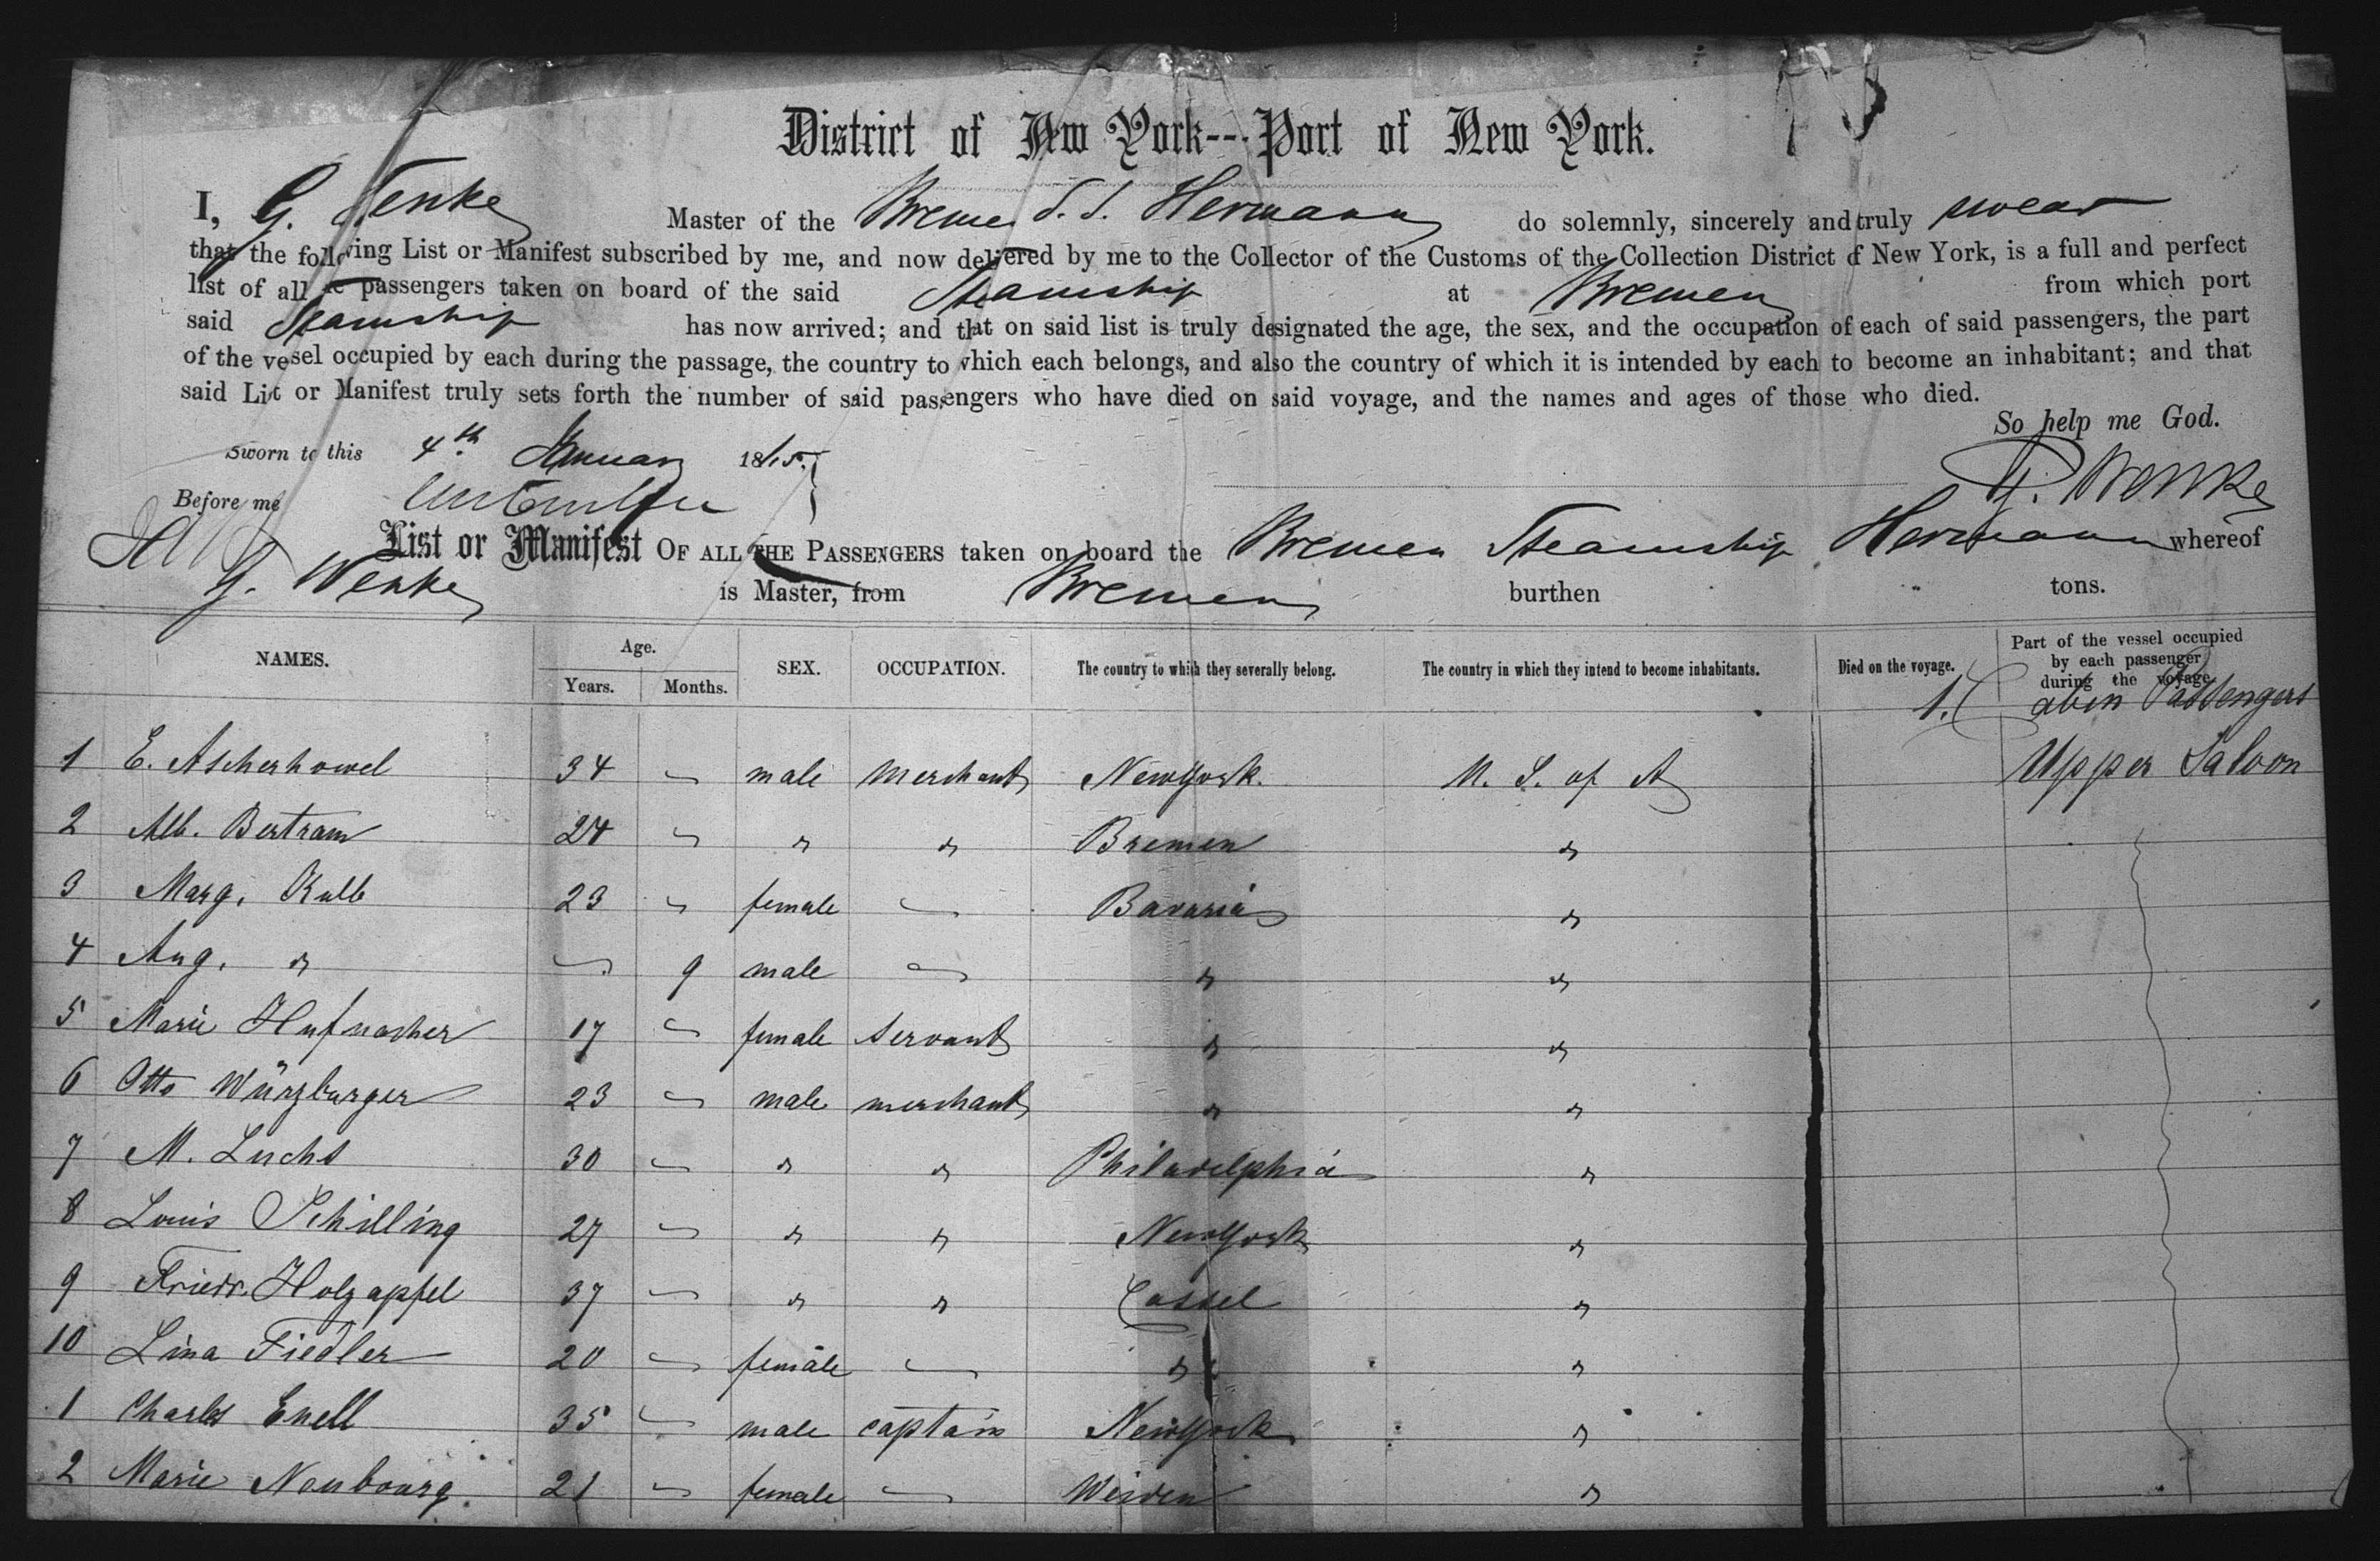 District of New York---Port of New York.
I, G. Wenke Master of the Bremen S. S. Hermann do solemnly, sincerely and truly swear
that the following List or Manifest subscribed by me, and now delivered by me to the Collector of the Customs of the Collection District of New York, is a full and perfect
list of all the passengers taken on board of the said Steamship at Bremen from which port
said Steamship has now arrived; and that on said list is truly designated the age, the sex, and the occupation of each of said passengers, the part
of the vessel occupied by each during the passage, the country to which each belongs, and also the country of which it is intended by each to become an inhabitant; and that
said List or Manifest truly sets forth the number of said passengers who have died on said voyage, and the names and ages of those who died.
So help me God.
Sworn to this 4th January 18
G. Wenke
Before me
List or Manifest OF ALL THE PASSENGERS taken on board the Bremen Steamship Hermann whereof
G. Wenke is Master, from Bremen burthen tons.
NAMES. Age. Years. Months. SEX. OCCUPATION. The country to which they severally belong. The country in which they intend to become inhabitants. Died on the voyage. Part of the vessel occupied by each passenger during the voyage.
1. Cabin Passengers
1 E. Ascherhowel 34 " male merchant New York. U. S. of A Upper Saloon
2 Alb. Bertram 24 " " " Bremen "
3 Marg. Kulb 23 " female Bavaria "
4 Aug. " 9 male " "
5 Marie Hufnacher 17 " female servant " "
6 Otto Würzburger 23 " male merchant " "
7 M. Luchs 30 " " " Philadelphia "
8 Louis Schilling 27 " " " New York "
9 Friedr. Holzapfel 37 " " " Cassel "
10 Lina Fiedler 20 " female " "
1 Charles Enell 35 " male captain New York "
2 Marie Neubourg. 21 " female Weiden "